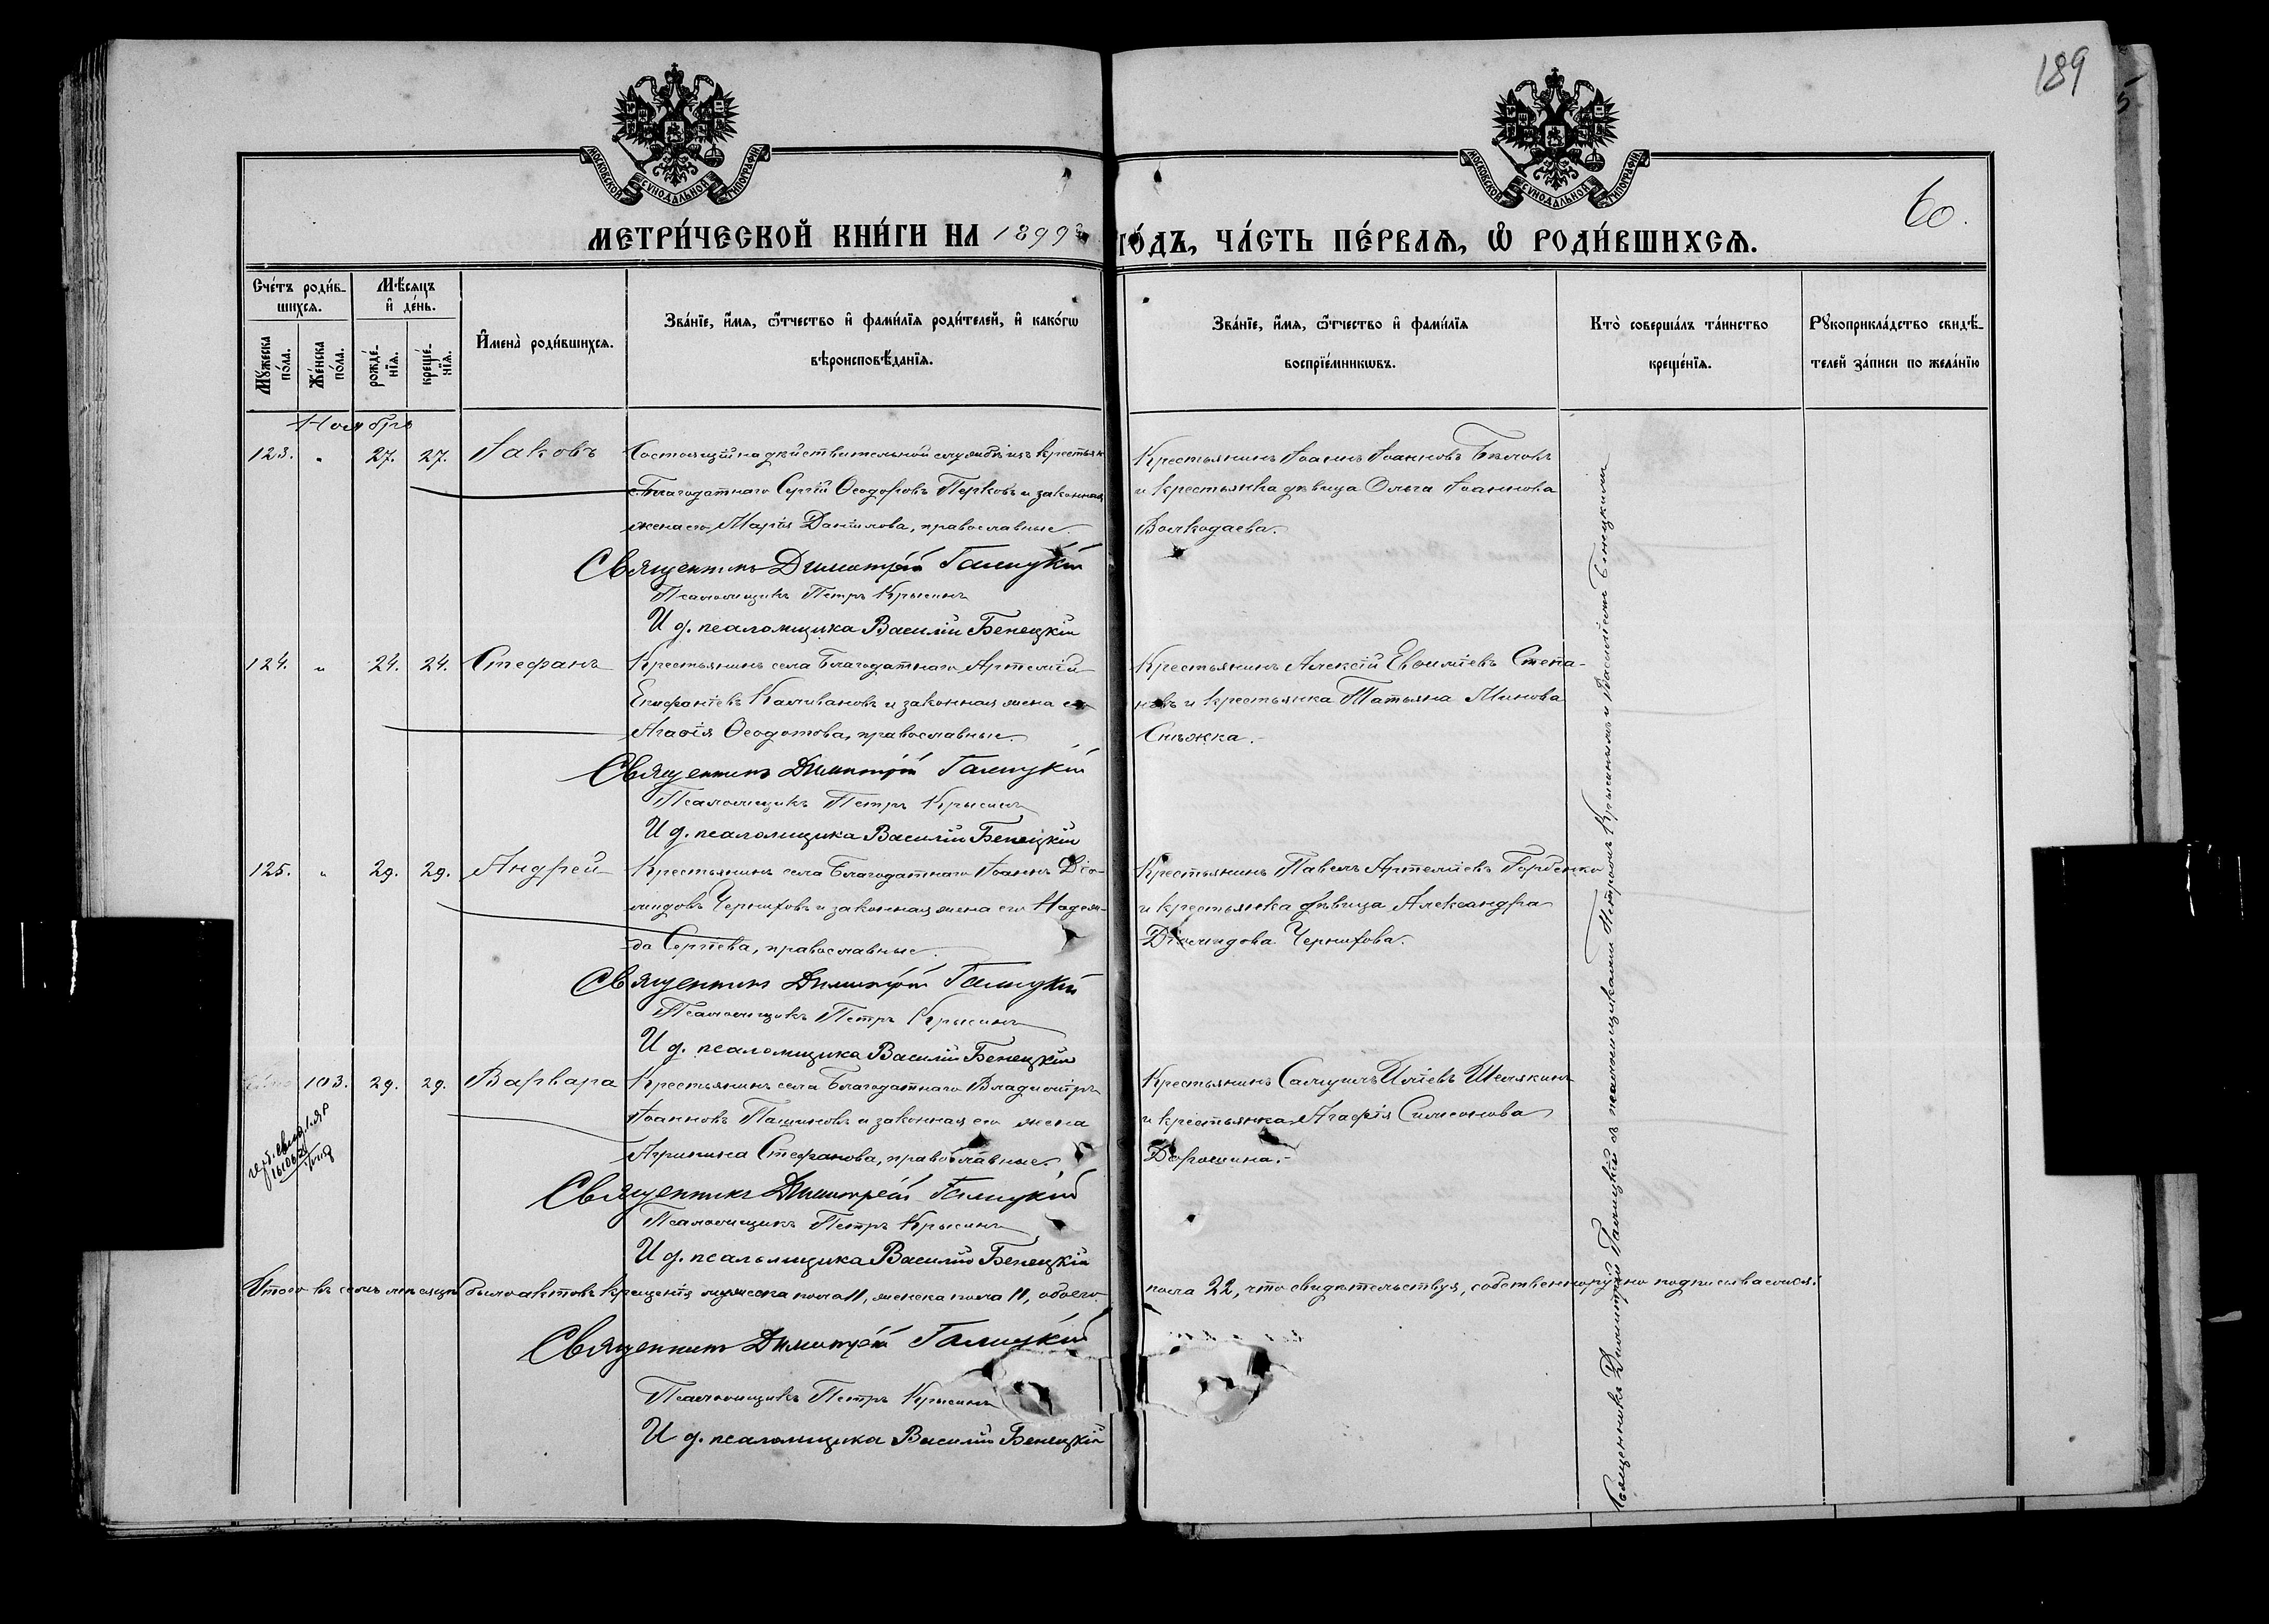 189
5
60.
МОСКОВСКОЙ СѴНОДАЛЬНОЙ ТИПОГРАФІИ
МОСКОВСКОЙ СѴНОДАЛЬНОЙ ТИПОГРАФІИ
МЕТРИ́ЧЕСКОЙ КНИ́ГИ НА 1899й ГО́ДЪ, ЧА́СТЬ ПЕ́РВАѦ, Ѽ РОДИ́ВШИХСѦ.
Сче́тъ роди́в-
шихсѧ.
Мꙋ́жеска по́ла.
Же́нска по́ла.
Мѣ́сѧцъ и҆ де́нь.
рожде́-
нїѧ.
креще́-
нїѧ.
И҆мена̀ роди́вшихсѧ.
Зва́нїе, и҆́мѧ, ѻ҆́тчество и҆ фами́лїѧ роди́телей, и҆ како́гѡ
вѣроисповѣ́данїѧ.
Зва́нїе, и҆́мѧ, ѻ҆́тчество и҆ фами́лїѧ
воспрїе́мникѡвъ.
Кто̀ соверша́лъ та́инство
креще́нїѧ.
Рꙋкоприкла́дство свидѣ́-
телей за́писи по жела́нїю
Ноябрь
123. " 27. 27. Іаковъ Состоящій на дѣйствительной службѣ изъ крестьян
с. Благодатнаго Сергій Ѳеодоровъ Перковъ и законная
жена его Марія Даніилова, православные
Крестьянинъ Іоаннъ Іоанновъ Бѣловъ
и крестьянка дѣвица Ольга Іоаннова
Волкодаева.
Священникъ Димитрій Галицкій
Псаломщикъ Петръ Крысинъ
И д. псаломщика Василій Бенецкій
124. " 24. 24. Стефанъ Крестьянинъ села Благодатнаго Артемій
Епифаніевъ Каливановъ и законная жена его
Агаѳія Ѳеодотова, православные.
Крестьянинъ Алексій Евѳиміевъ Степа-
новъ и крестьянка Татьяна Минова
Снѣжка.
Священникъ Димитрій Галицкій
Псаломщикъ Петръ Крысинъ
И д. псаломщика Василій Бенецкій
125. " 29. 29. Андрей Крестьянинъ села Благодатнаго Іоаннъ Діо-
мидовъ Черниховъ и законная жена его Надеж-
да Сергіева, православные.
Крестьянинъ Павелъ Артеміевъ Горбенко
и крестьянка дѣвица Александра
Діомидова Чернихова.
Священникъ Димитрій Галицкій
Псаломщикъ Петръ Крысинъ
И д. псаломщика Василій Бенецкій
103. 29. 29. Варвара Крестьянинъ села Благодатнаго Владиміръ
Іоанновъ Пашиновъ и законная его жена
Агрипина Стефанова, православные.
Крестьянинъ Самуилъ Иліевъ Шелякинъ
и крестьянка Агафія Симеонова
Дорошина.
Священникъ Димитрій Галицкій
Псаломщикъ Петръ Крысинъ
И д. псаломщика Василій Бенецкій
Итого въ семъ мѣсяцѣ было актовъ крещенія мужеска пола 11, женска пола 11, обоего пола 22, что свидѣтельствуя, собственноручно подписываемся:
Священникъ Димитрій Галицкій
Псаломщикъ Петръ Крысинъ
И д. псаломщика Василій Бенецкій
Священникъ Димитрій Галицкій съ псаломщиками Петромъ Крысинымъ и Василіемъ Бенецкимъ